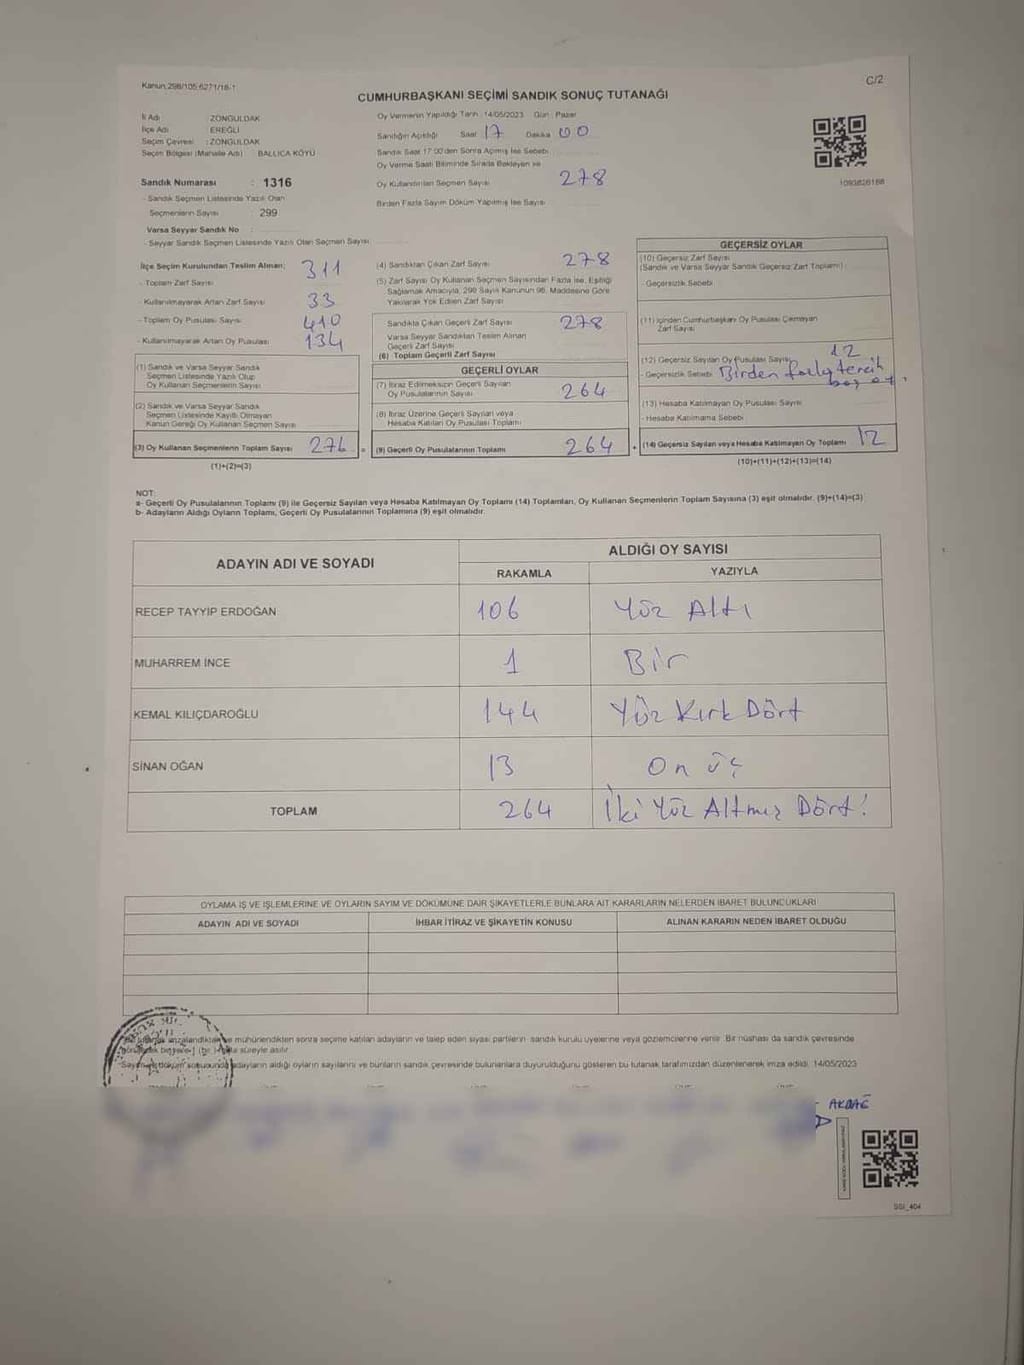 Kanun:298/105;6271/18-1
C/2
CUMHURBAŞKANI SEÇİMİ SANDIK SONUÇ TUTANAĞI
İl Adı : ZONGULDAK
İlçe Adı : EREĞLİ
Seçim Çevresi : ZONGULDAK
Seçim Bölgesi (Mahalle Adı) : BALLICA KÖYÜ
Sandık Numarası : 1316
- Sandık Seçmen Listesinde Yazılı Olan
Seçmenlerin Sayısı : 299
Varsa Seyyar Sandık No :
- Seyyar Sandık Seçmen Listesinde Yazılı Olan Seçmen Sayısı
Oy Vermenin Yapıldığı Tarih : 14/05/2023 Gün : Pazar
Sandığın Açıldığı Saat 17 Dakika 00
Sandık Saat 17:00'den Sonra Açılmış İse Sebebi
Oy Verme Saati Bitiminde Sırada Bekleyen ve
Oy Kullandırılan Seçmen Sayısı 278
Birden Fazla Sayım Döküm Yapılmış İse Sayısı
1093826188
İlçe Seçim Kurulundan Teslim Alınan;
- Toplam Zarf Sayısı 311
- Kullanılmayarak Artan Zarf Sayısı 33
- Toplam Oy Pusulası Sayısı 410
- Kullanılmayarak Artan Oy Pusulası 134
(1) Sandık ve Varsa Seyyar Sandık
Seçmen Listesinde Yazılı Olup
Oy Kullanan Seçmenlerin Sayısı
(2) Sandık ve Varsa Seyyar Sandık
Seçmen Listesinde Kayıtlı Olmayan
Kanun Gereği Oy Kullanan Seçmen Sayısı
(3) Oy Kullanan Seçmenlerin Toplam Sayısı 276 =
(1)+(2)=(3)
(4) Sandıktan Çıkan Zarf Sayısı 278
(5) Zarf Sayısı Oy Kullanan Seçmen Sayısından Fazla İse, Eşitliği
Sağlamak Amacıyla, 298 Sayılı Kanunun 98. Maddesine Göre
Yakılarak Yok Edilen Zarf Sayısı
Sandıkta Çıkan Geçerli Zarf Sayısı 278
Varsa Seyyar Sandıktan Teslim Alınan
Geçerli Zarf Sayısı
(6) Toplam Geçerli Zarf Sayısı
GEÇERLİ OYLAR
(7) İtiraz Edilmeksizin Geçerli Sayılan
Oy Pusulasının Sayısı 264
(8) İtiraz Üzerine Geçerli Sayılan veya
Hesaba Katılan Oy Pusulası Toplamı
(9) Geçerli Oy Pusulalarının Toplamı 264 +
GEÇERSİZ OYLAR
(10) Geçersiz Zarf Sayısı
(Sandık ve Varsa Seyyar Sandık Geçersiz Zarf Toplamı)
- Geçersizlik Sebebi
(11) İçinden Cumhurbaşkanı Oy Pusulası Çıkmayan
Zarf Sayısı
(12) Geçersiz Sayılan Oy Pusulası Sayısı 12
- Geçersizlik Sebebi Birden fazla tercih
boş oy
(13) Hesaba Katılmayan Oy Pusulası Sayısı
- Hesaba Katılmama Sebebi
(14) Geçersiz Sayılan veya Hesaba Katılmayan Oy Toplamı 12
(10)+(11)+(12)+(13)=(14)
NOT:
a- Geçerli Oy Pusulalarının Toplamı (9) ile Geçersiz Sayılan veya Hesaba Katılmayan Oy Toplamı (14) Toplamları, Oy Kullanan Seçmenlerin Toplam Sayısına (3) eşit olmalıdır. (9)+(14)=(3)
b- Adayların Aldığı Oyların Toplamı, Geçerli Oy Pusulalarının Toplamına (9) eşit olmalıdır.
ADAYIN ADI VE SOYADI
ALDIĞI OY SAYISI
RAKAMLA YAZIYLA
RECEP TAYYİP ERDOĞAN 106 Yüz Altı
MUHARREM İNCE 1 Bir
KEMAL KILIÇDAROĞLU 144 Yüz Kırk Dört
SİNAN OĞAN 13 On üç
TOPLAM 264 İki Yüz Altmış Dört!
OYLAMA İŞ VE İŞLEMLERİNE VE OYLARIN SAYIM VE DÖKÜMÜNE DAİR ŞİKAYETLERLE BUNLARA AİT KARARLARIN NELERDEN İBARET BULUNDUKLARI
ADAYIN ADI VE SOYADI İHBAR İTİRAZ VE ŞİKAYETİN KONUSU ALINAN KARARIN NEDEN İBARET OLDUĞU
mühürlendikten sonra seçime katılan adayların ve talep eden siyasi partilerin sandık kurulu üyelerine veya gözlemcilerine verilir. Bir nüshası da sandık çevresinde
süreyle asılır.
adayların aldığı oyların sayılarını ve bunların sandık çevresinde bulunanlara duyurulduğunu gösteren bu tutanak tarafımızdan düzenlenerek imza edildi. 14/05/2023
AKDAĞ
SSI_404